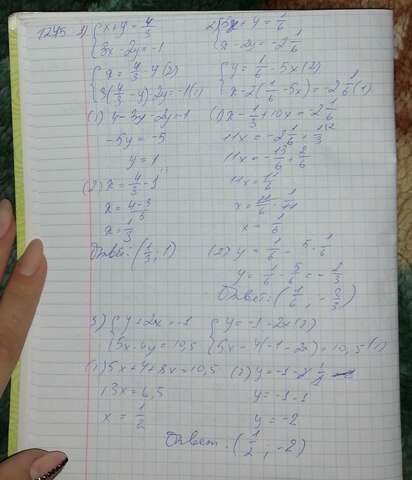 1245 1) {x+y = 4/3
{3x-2y = -1
{x = 4/3 - y (2)
{3(4/3 - y) - 2y = -1 (1)
(1) 4 - 3y - 2y = -1
-5y = -5
y = 1
(2) x = 4/3 - 1
x = (4-3)/3
x = 1/3
Ответ: (1/3; 1)
2) {5x + y = 1/6
{x - 2y = -2 1/6
{y = 1/6 - 5x (2)
{x - 2(1/6 - 5x) = -2 1/6 (1)
(1) x - 1/3 + 10x = -2 1/6
11x = -2 1/6 + 1/3
11x = -13/6 + 2/6
x = 1/6
(2) y = 1/6 - 5 · 1/6
y = 1/6 - 5/6 = - 2/3
Ответ: (1/6; - 2/3)
3) {y + 2x = -1
{5x - 4y = 10,5
{y = -1 - 2x (2)
{5x - 4(-1 - 2x) = 10,5 (1)
(1) 5x + 4 + 8x = 10,5
13x = 6,5
x = 1/2
(2) y = -1 - 2 · 1/2
y = -1 - 1
y = -2
Ответ: (1/2; -2)